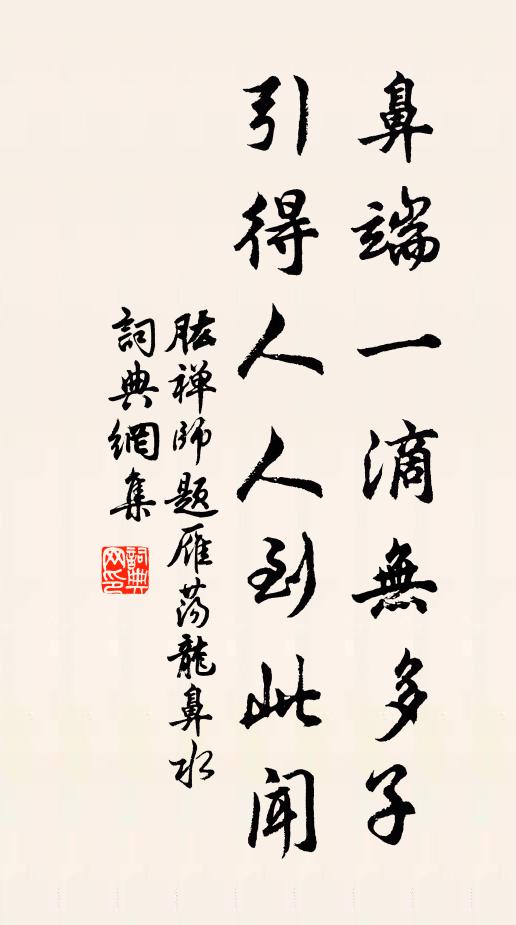 鼻端一滴無多子
引得人人到此聞
肱禅師題雁荡龍鼻水
詞典網集
詞典網印